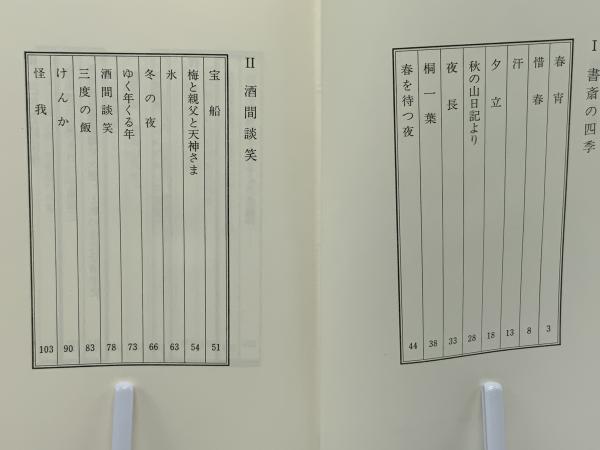 I 書斎の四季
春宵 3
惜春 8
汗 13
夕立 18
秋の山日記より 28
夜長 33
桐一葉 38
春を待つ夜 44
II 酒間談笑
宝船 51
梅と親父と天神さま 54
氷 63
冬の夜 66
ゆく年くる年 73
酒間談笑 78
三度の飯 83
けんか 90
怪我 103